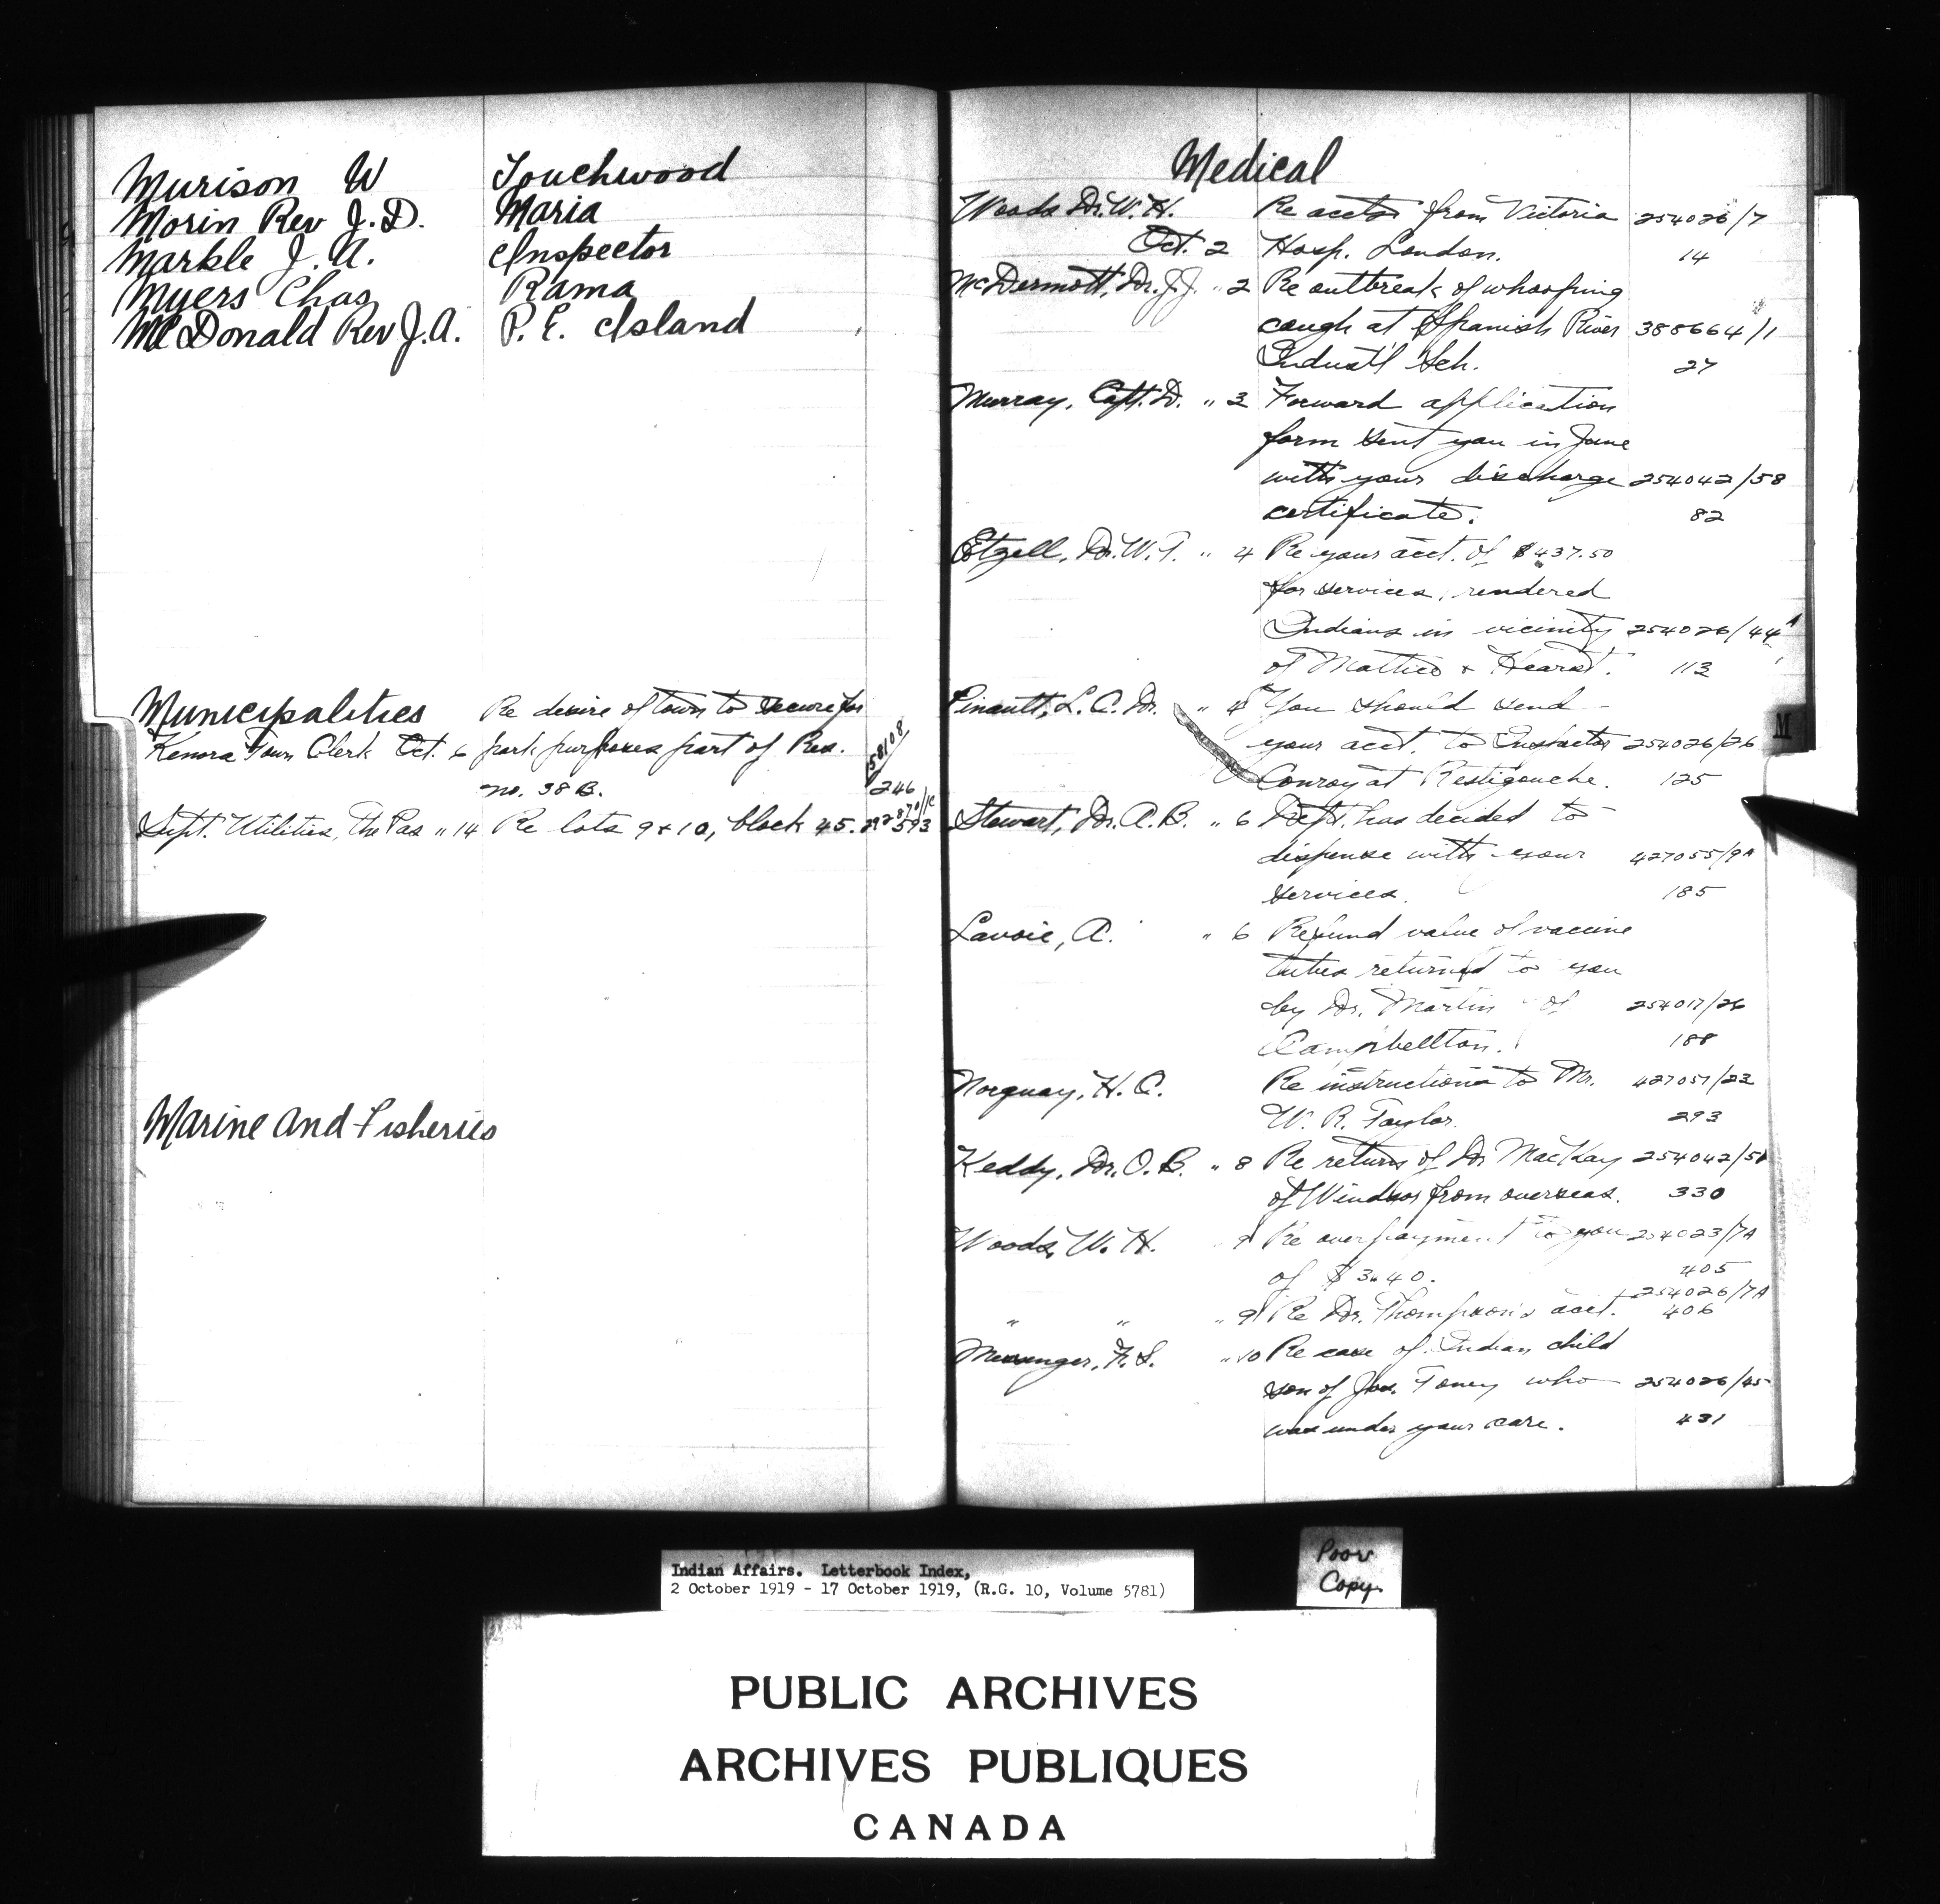 Murison W Touchwood
Morin Rev J. D. Maria
Markle J. A. Inspector
Myers Chas Rama
McDonald Rev J. A. P. E. Island
Municipalities Re desire of town to secure for
Kenora Town Clerk Oct. 6 park purposes part of Res. 58108
no. 38 B. 246
Supt. Utilities, The Pas " 14 Re lots 9 + 10, block 45. 593
Marine and Fisheries
Medical
Woods Dr. W. H. Re accts from Victoria 254026/7
Oct. 2 Hosp. London. 14
McDermott, Dr. J. J. " 2 Re outbreak of whooping
cough at Spanish River 388664/1
Indust'l Sch. 27
Murray, Capt. D. " 3 Forward application
form sent you in June
with your discharge 254042/58
certificate. 82
Etzell, Dr. W. T. " 4 Re your acct. of $437.50
for services rendered
Indians in vicinity 254026/44A
of Mattice + Hearst. 113
Pinault, L. C. Dr. " 4 You should send
your acct. to Inspector 254026/26
Conroy at Restigouche. 125
Stewart, Dr. A. B. " 6 Dept. has decided to
dispense with your 427055/9A
services. 185
Lavoie, A. " 6 Refund value of vaccine
tubes returned to you
by Dr. Martin of 254017/26
Campbellton. 188
Norquay, H. C. Re instructions to Mr. 427051/23
W. R. Taylor. 293
Keddy, Dr. O. B. " 8 Re return of Dr MacKay 254042/51
of Windsor from overseas. 330
Woods, W. H. 9 Re overpayment to you 254023/7A
of $36.40. 405
254026/7A
" " " 9 Re Dr. Thompson's acct. 406
Messenger, F. S. " 10 Re case of Indian child
son of Jos. Toney who 254026/45
was under your care. 431
M
Indian Affairs. Letterbook Index,
2 October 1919 - 17 October 1919, (R.G. 10, Volume 5781)
Poor
Copy.
PUBLIC ARCHIVES
ARCHIVES PUBLIQUES
CANADA